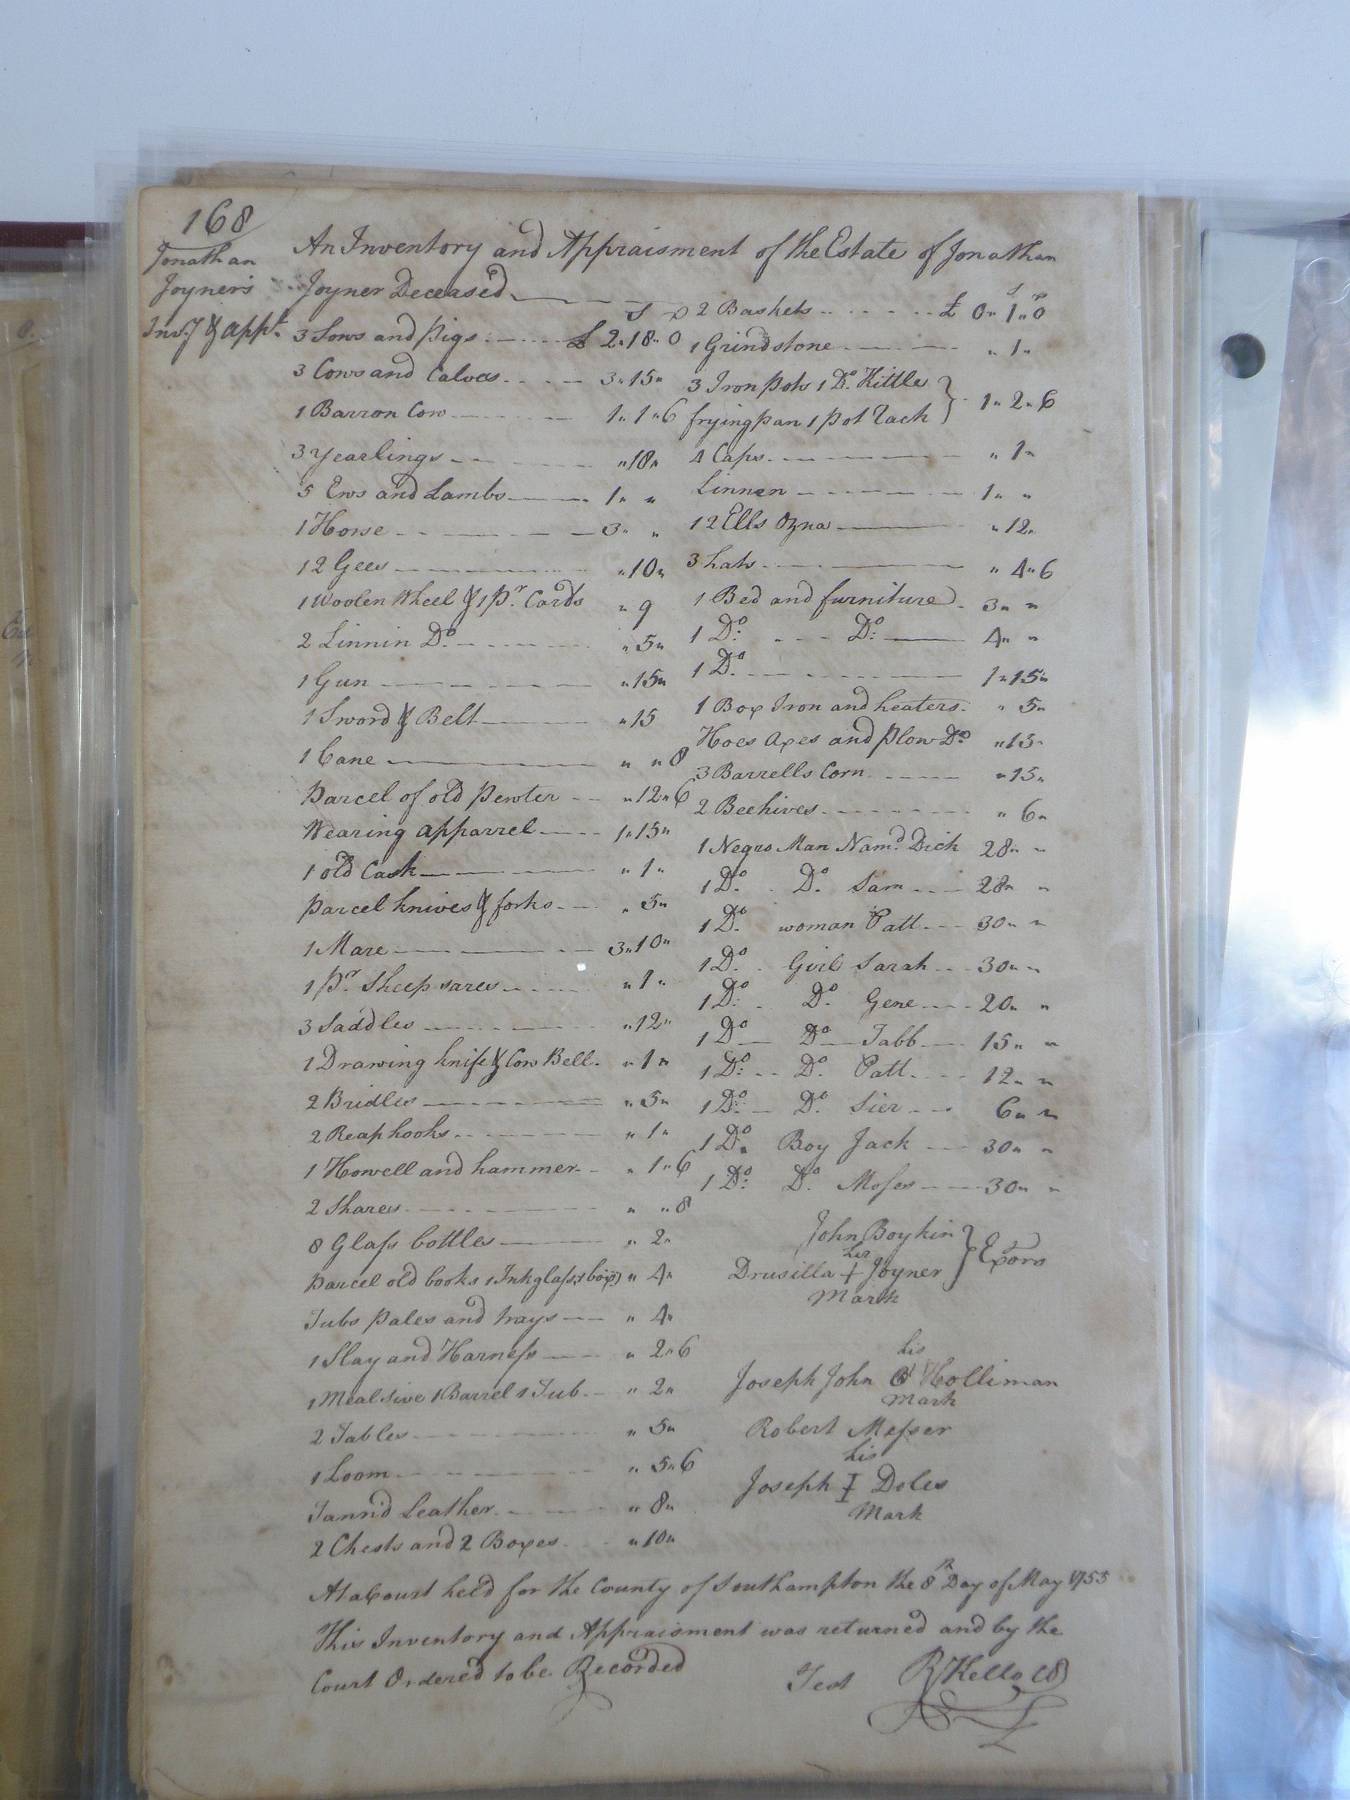 168
Jonathan
Joyner's
Inv.y & app.t
An Inventory and Appraisment of the Estate of Jonathan
Joyner Deceased
S D
3 Sows and Pigs £ 2"18"0
3 Cows and Calves 3"15"
1 Barron Cow 1"1"6
3 Yearlings "18"
5 Ews and Lambs 1" "
1 Horse 3" "
12 Gees "10"
1 Woolen Wheel & 1 P.r Cards " 9
2 Linnin D.o "5"
1 Gun "15"
1 Sword & Belt "15
1 Cane " "8
Parcel of old Pewter "12"6
Wearing apparrel 1"15"
1 old Cask "1"
Parcel knives & forks "5"
1 Mare 3"10"
1 P.r Sheep sares "1"
3 Saddles "12"
1 Drawing knife & Cow Bell "1"
2 Bridles "5"
2 Reap hooks "1"
1 Howell and hammer "1"6
2 Shares " "8
8 Glass bottles "2"
Parcel old books 1 Inkglass 1 box "4"
Tubs Pales and trays "4"
1 Slay and Harness "2"6
1 Meal sive 1 Barrel 1 Tub "2"
2 Tables "5"
1 Loom "5"6
Tann'd Leather "8"
2 Chests and 2 Boxes "10"
S D
2 Baskets £ 0"1"0
1 Grindstone "1"
3 Iron pots 1 D.o Kittle
frying pan 1 pot rack } 1"2"6
4 Caps "1"
Linnen 1" "
12 Ells Ozna "12"
3 hats "4"6
1 Bed and furniture 3" "
1 D.o D.o 4" "
1 D.o 1"15"
1 Box Iron and heaters "5"
Hoes axes and Plow D.o "13"
3 Barrells Corn "15"
2 Beehives "6"
1 Negro Man Nam.d Dick 28" "
1 D.o D.o Sam 28" "
1 D.o woman Patt 30" "
1 D.o Girl Sarah 30" "
1 D.o D.o Gene 20" "
1 D.o D.o Tabb 15" "
1 D.o D.o Patt 12" "
1 D.o D.o Sier 6" "
1 D.o Boy Jack 30" "
1 D.o D.o Moses 30" "
John Boykin
her
Drusilla + Joyner } Exors
Mark
his
Joseph John Holliman
Mark
Robert Messer
his
Joseph I Doles
Mark
At a Court held for the County of Southampton the 8th Day of May 1755
This Inventory and Appraisment was returned and by the
Court Ordered to be Recorded
Test R Kello